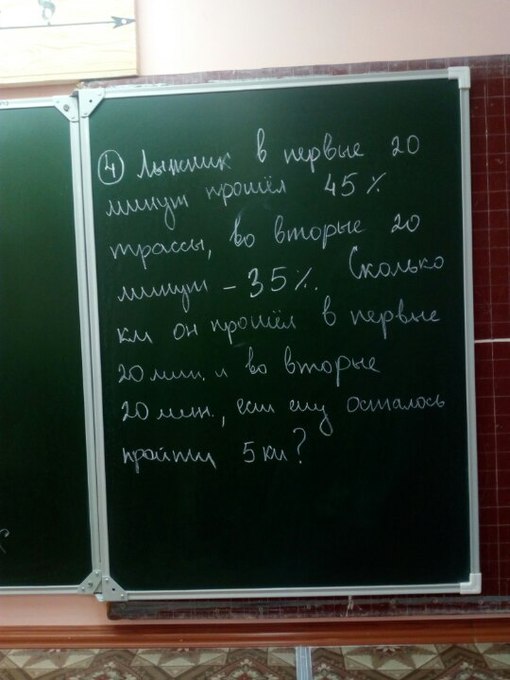 ④ Лыжник в первые 20
минут прошёл 45%
трассы, во вторые 20
минут - 35%. Сколько
км он прошёл в первые
20 мин. и во вторые
20 мин., если ему осталось
пройти 5 км?